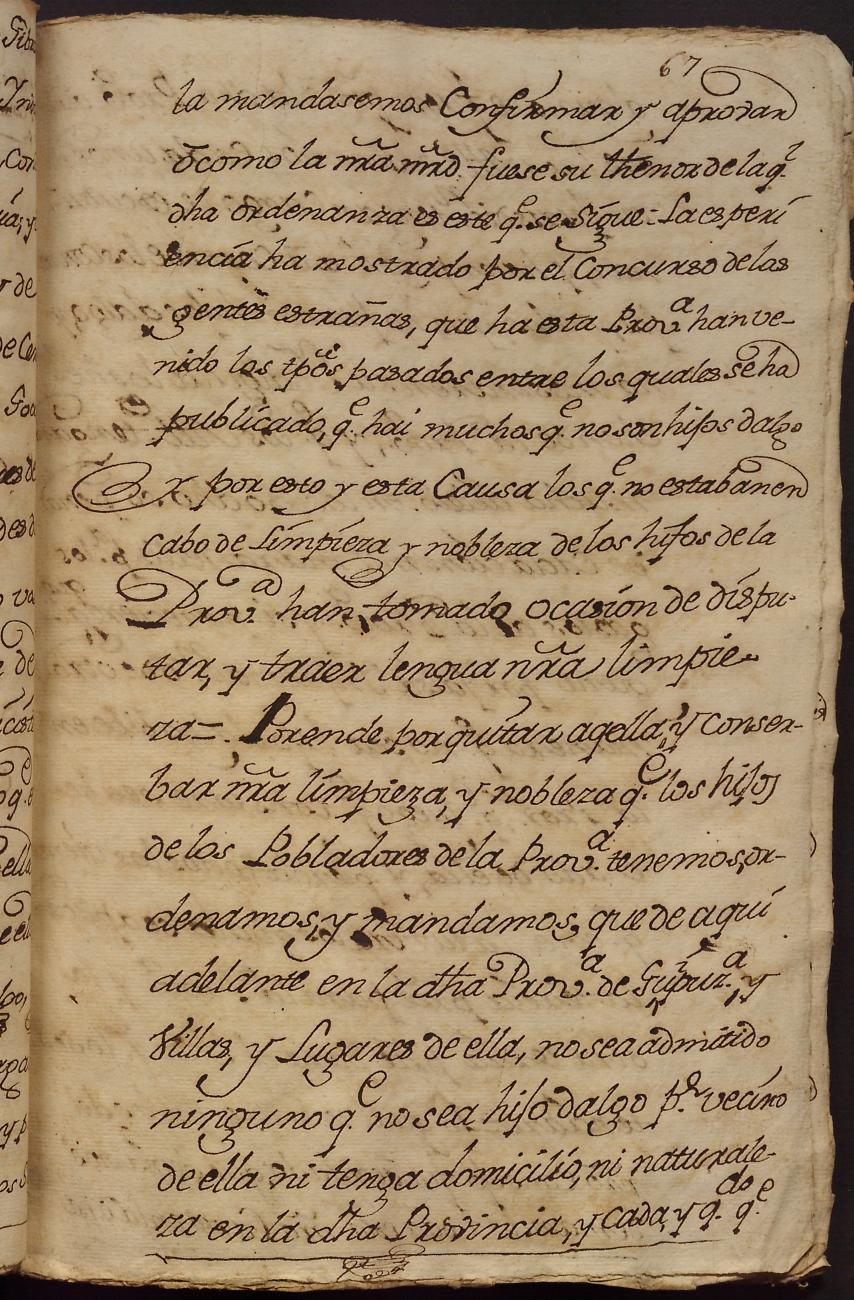 67
la mandasemos Confirmar y aprovar
ó como la nra mrd. fuese su thenor de la qͤ
dha ordenanza es este q.ͤ se Sigue = La esperi
encia ha mostrado por el Concurso de las
gentes estrañas, que ha esta Prov.ª han ve-
nido los tpōs pasados entre los quales se ha
publicado, q.ͤ hai muchos q.ͤ no son hijos dalgo
Y por esto y esta Causa los q.ͤ no estaban en
Cabo de Limpieza y nobleza de los hijos de la
Prov.ª han tomado ocasion de dispu-
tar, y traer lengua nr̃a limpie-
za=. Porende por quitar aqella, y conser-
bar nr̃a limpieza, y nobleza q.ͤ los hijos
de los Pobladores de la Prov.ª tenemos, or-
denamos, y mandamos, que de aqui
adelante en la dha Prov.ª de Guipuz.ª, y
Villas, y Lugares de ella, no sea admitido
ninguno q.ͤ no sea hijo dalgo p.ͬ vecino
de ella ni tenga domicilio, ni naturale-
za en la dha Provincia, y cada, y q.ᵈᵒ q.ͤ